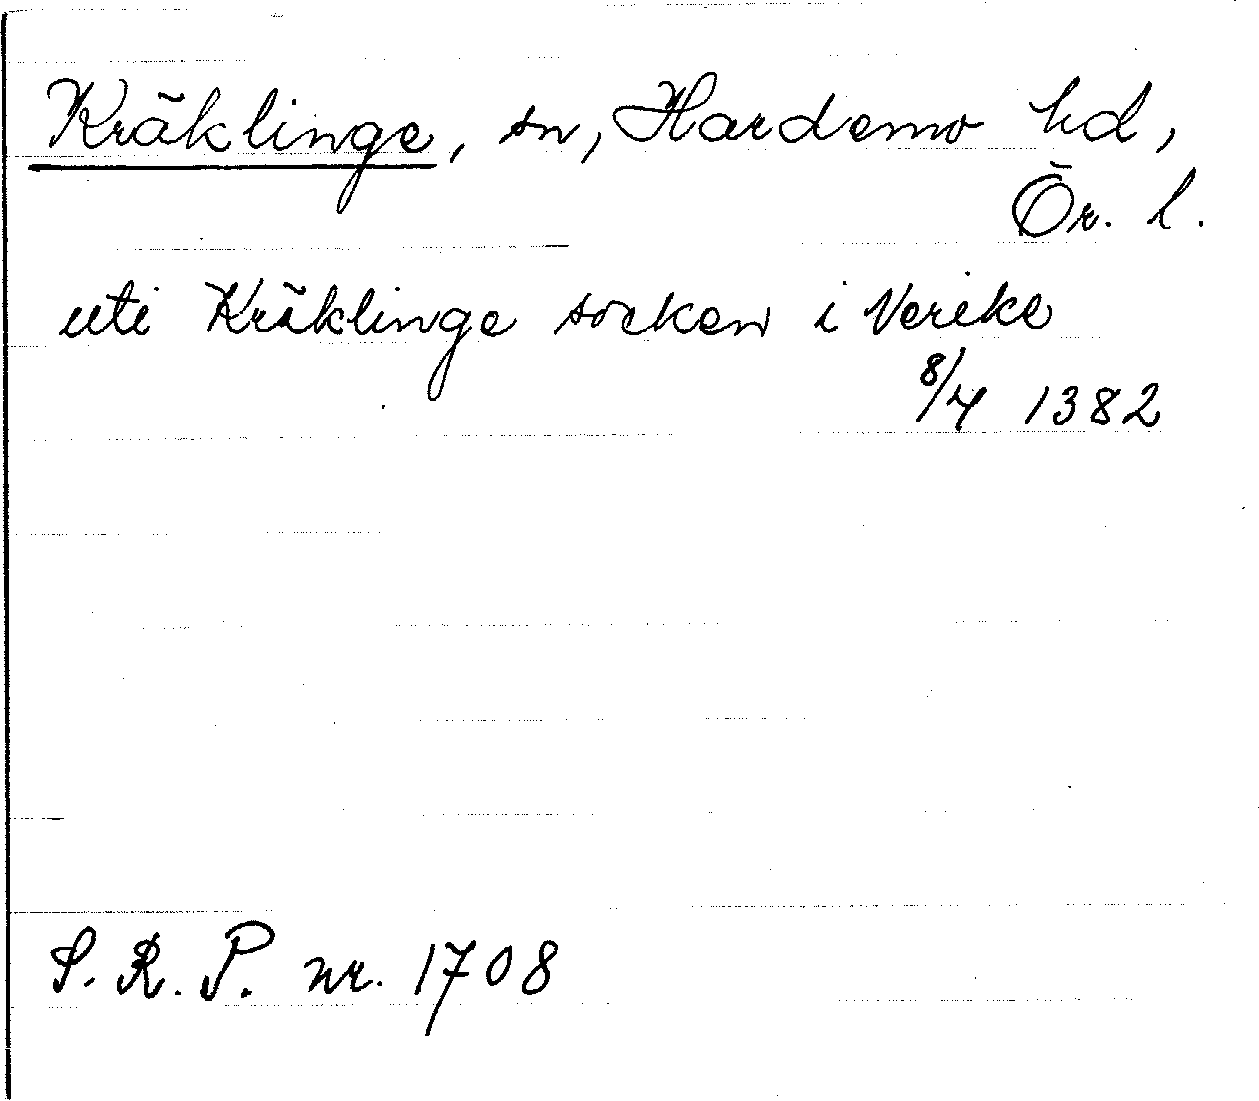 Kräklinge, sn, Hardemo hd,
Ör. l.
uti Kräklinge socken i Nerike
8/4 1382
S. R. P. nr. 1708